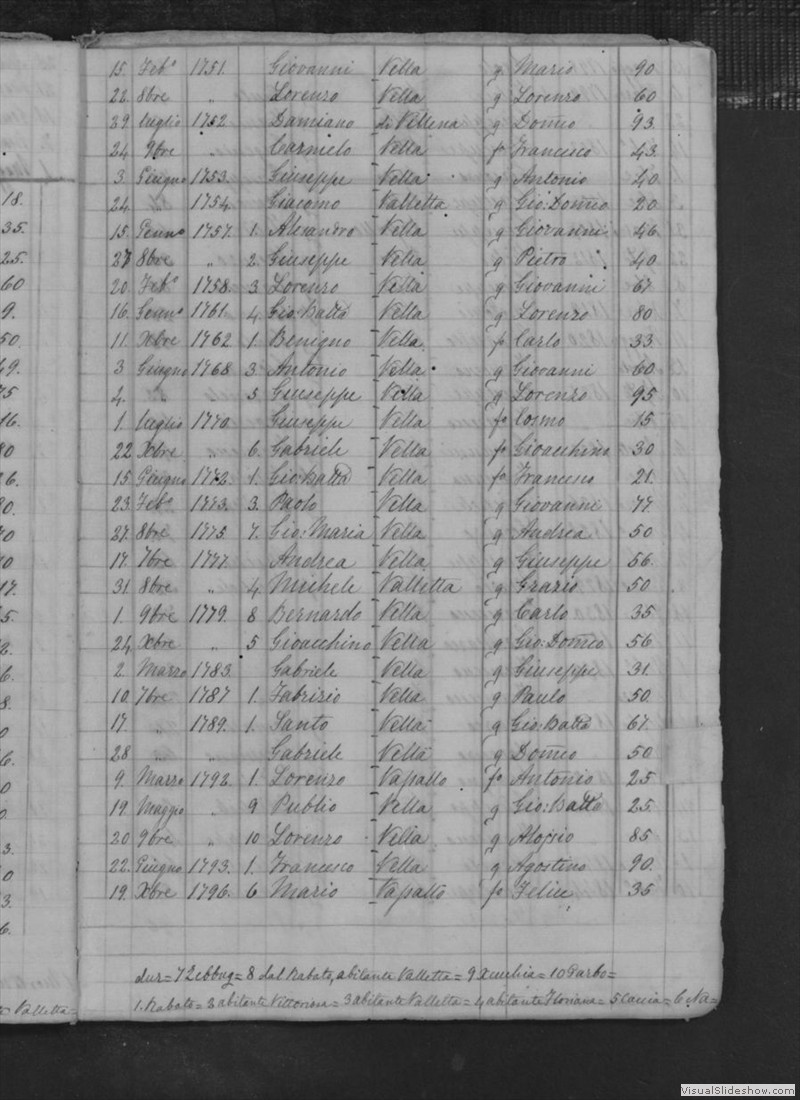 15. Feb° 1751. Giovanni Vella g Mario 90
22. 8bre " Lorenzo Vella g Lorenzo 60
29 luglio 1752 Damiano di Villena g Domco 93.
24 9bre " Carmelo Vella fo Francesco 43.
3. Giugno 1753. Giuseppe Vella g Antonio 40.
24. " 1754. Giacomo Valletta g Gio: Domco 20
15 Genno 1757. 1. Alesandro Vella g Giovanni 46
27 8bre " 2. Giuseppe Vella g Pietro 40
20. Feb° 1758. 3 Lorenzo Vella g Giovanni 67.
16. Genno 1761. 4. Gio: Batta Vella g Lorenzo 80
11. Xbre 1762 1. Benigno Vella fo Carlo 33
3 Giugno 1768 3 Antonio Vella g Giovanni 60.
4. 5 Giuseppe Vella g Lorenzo 95
1. luglio 1770. Giuseppe Vella fo Cosmo 15
22 Xbre 6. Gabriele Vella fo Gioacchino 30
15 Giugno 1772. 1. Gio: Batta Vella fo Francesco 21.
23. Feb° 1773. 3. Paolo Vella g Giovanni 77.
27. 8bre 1775 7. Gio: Maria Vella g Andrea 50
17. 7bre 1777. Andrea Vella g Giuseppe 56.
31. 8bre " 4. Michele Valletta g Grazio 50.
1. 9bre 1779. 8 Bernardo Vella g Carlo 35
24 Xbre " 5 Gioacchino Vella g Gio: Domco 56
2. Marzo 1783. Gabriele Vella g Giuseppe 31.
10. 7bre 1787 1. Fabrizio Vella g Paulo 50.
17. " 1789. 1. Santo Vella g Gio: Batta 67.
28 " " Gabriele Vella g Domco 50
9. Marzo 1792. 1. Lorenzo Vapallo fo Antonio 25
19. Maggio " 9 Publio Vella g Gio: Batta 25.
20 9bre " 10 Lorenzo Vella g Aloisio 85
22. Giugno 1793. 1. Francesco Vella g Agostino 90.
19. Xbre 1796. 6 Mario Vapallo fo Felice 35
dur = 7 Zebbug = 8 dal Rabato, abitante Valletta = 9 = 10 =
1. Rabato = 3 abitante Vittoriosa = 3 abitante Valletta = 4 abitante Floriana = 5 = 6 Na =
18.
35.
25.
60
9.
50.
49.
75
16.
80
26.
80.
70
10
17.
5.
2.
6.
8.
0
6.
0
0.
3.
0
3.
6.
Valletta =
VisualSlideshow.com